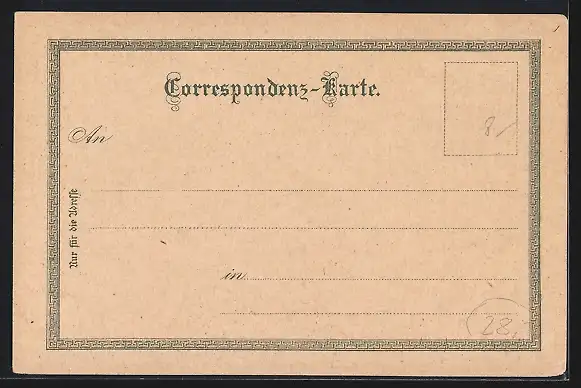 Correspondenz-Karte.
8,-
An
Nur für die Adresse
in
28,